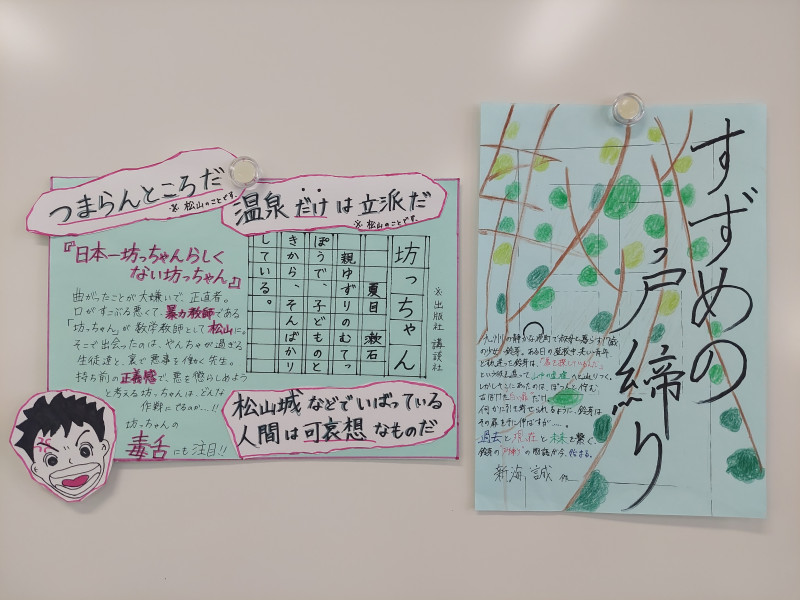 つまらんところだ
※松山のことです。
温泉だけは立派だ
※松山のことです。
『日本一坊っちゃんらしく
ない坊っちゃん』
曲がったことが大嫌いで、正直者。
口がすこぶる悪くて、暴力教師である
「坊っちゃん」が数学教師として松山に。
そこで出会ったのは、やんちゃが過ぎる
生徒達と、裏で悪事を働く先生。
持ち前の正義感で、悪を懲らしめよう
と考える坊っちゃんは、どんな
作戦にでるのか…!!
坊っちゃんの
毒舌にも注目!!
※出版社 講談社
坊っちゃん
夏目 漱石
親ゆずりのむてっ
ぽうで、子どものと
きから、そんばかり
している。
松山城などでいばっている
人間は可哀想なものだ
すずめの
戸締り
九州の静かな港町で叔母と暮らす17歳
の少女・鈴芽。ある日の登校中、美しい青年
とすれ違った鈴芽は、「扉を探しているんだ」
という彼を追って山中の廃墟へと辿りつく。
しかしそこにあったのは、ぽつんと佇む
古びた白い扉だけ。
何かに引き寄せられるように、鈴芽は
その扉に手を伸ばすが……。
過去と現在と未来を繋ぐ、
鈴芽の"戸締り"の物語が今、始まる。
新海 誠 作